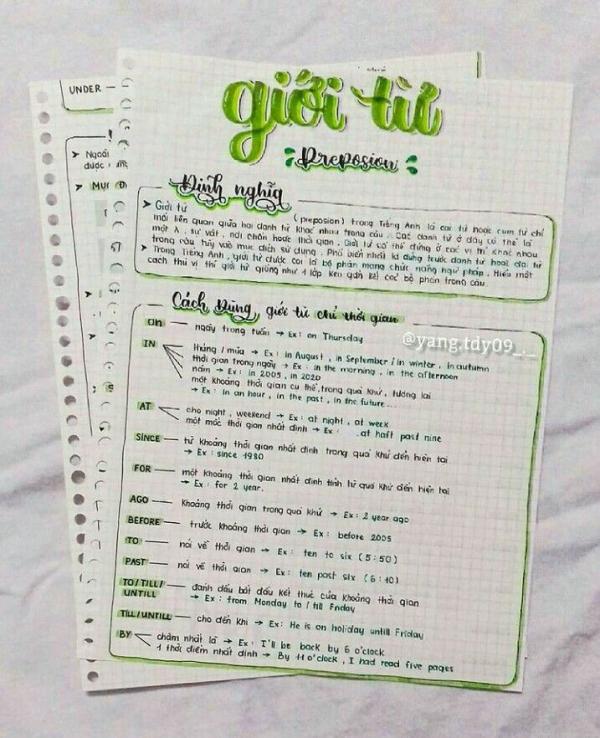 UNDER
giới từ
Preposion
Định nghĩa
➤ Giới từ (preposion) trong Tiếng Anh là cái từ hoặc cụm từ chỉ
mối liên quan giữa hai danh từ khác nhau trong câu. Các danh từ ở đây có thể là
một, sự vật, nơi chốn hoặc thời gian. Giới từ có thể đứng ở các vị trí khác nhau
trong câu tùy vào mục đích sử dụng. Phổ biến nhất là đứng trước danh từ hoặc đại từ
➤ Trong Tiếng Anh, giới từ được coi là bộ phận mang chức năng ngữ pháp. Hiểu một
cách thú vị thì giới từ giống như 1 lớp keo gắn kết các bộ phận trong câu.
Cách Dùng giới từ chỉ thời gian
@yang.tdy09_._
ON — ngày trong tuần → Ex: on Thursday
IN tháng / mùa → Ex: in August, in September / in winter, in autumn
thời gian trong ngày → Ex: in the morning, in the afternoon
năm → Ex: in 2005, in 2020
một khoảng thời gian cụ thể, trong quá khứ, tương lai
→ Ex: in an hour, in the past, in the future...
AT cho night, weekend → Ex: at night, at week
một mốc thời gian nhất định → Ex: at haft past nine
SINCE — từ khoảng thời gian nhất định trong quá khứ đến hiện tại
→ Ex: since 1980
FOR — một khoảng thời gian nhất định tính từ quá khứ đến hiện tại
→ Ex: for 2 year.
AGO — khoảng thời gian trong quá khứ → Ex: 2 year ago
BEFORE — trước khoảng thời gian → Ex: before 2005
TO — nói về thời gian → Ex: ten to six (5:50)
PAST — nói về thời gian → Ex: ten past six (6:10)
TO/TILL/ — đánh dấu bắt đầu kết thúc của khoảng thời gian
UNTILL → Ex: from Monday to / till Friday
TILL/UNTILL — cho đến khi → Ex: He is on holiday untill Friday
BY chậm nhất là → Ex: I'll be back by 6 o'clock
1 thời điểm nhất định → By 11 o'clock, I had read five pages